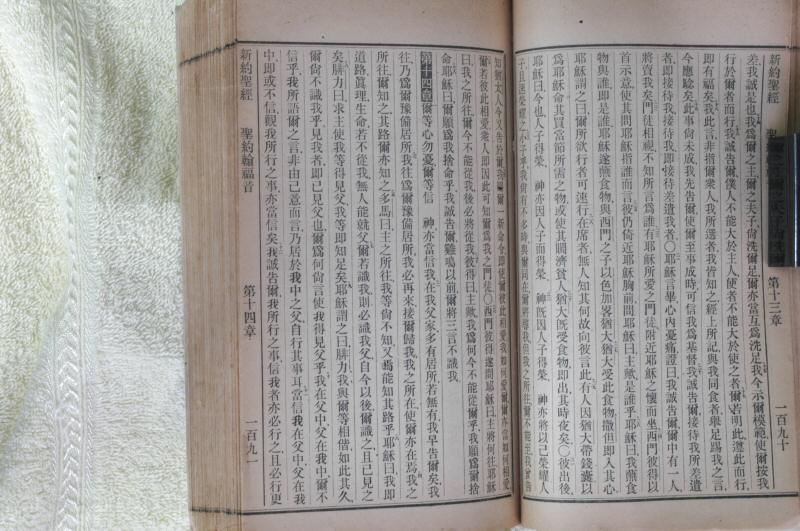 新約聖經 聖約翰福音 第十三章 一百九十
差我誠是也我爲爾之主爾之夫子尙洗爾足爾亦當互爲洗足我今示爾模範使爾按我
行於爾者而行我誠告爾僕人不能大於主人使者不能大於使之者爾若明此遵此而行
即有福矣我此言非指爾衆人我所選者我皆知之經上所記與我同食者舉足踢我之言
今應驗矣此事尙未成我先告爾使爾至事成時可信我爲基督我誠告爾接待我所差遣
者即接待我接待我即接待差遣我者〇耶穌言畢心內憂痛證曰我誠告爾爾中有一人
將賣我矣門徒相視不知所言爲誰有耶穌所愛之門徒附近耶穌之懷而坐西門彼得以
首示意使其問耶穌指誰而言彼仍倚近耶穌胸前問耶穌曰主歟是誰乎耶穌曰我蘸食
物與誰即是誰耶穌遂蘸食物與西門之子以色加畧猶大猶大受此食物撒但即入其心
耶穌謂之曰爾所欲行者可速行在席者無人知其何故向彼言此有人因猶大帶錢囊以
爲耶穌命其買當節所需之物或使其賙濟貧人猶大旣受食物即出其時夜矣〇彼出後
耶穌曰今也人子得榮 神亦因人子而得榮 神旣因人子得榮 神亦將以己榮耀人
知
爾若彼此相愛衆人即因此可知爾爲我之門徒〇西門彼得遂問耶穌曰主將何往耶穌
曰我之所往爾今不能從我後必將從我彼得曰主歟我爲何今不能從爾乎我願爲爾捨
命耶穌曰爾願爲我捨命乎我誠告爾雞鳴以前爾將三言不識我
第十四章爾等心勿憂爾等信 神亦當信我在我父家多有居所若無有我早告爾矣我
往乃爲爾豫備居所我往爲爾豫備居所我必再來接爾歸我我之所在使爾亦在焉我之
所往爾知之其路爾亦知之多馬曰主之所往我等尙不知又焉能知其路乎耶穌曰我即
道路眞理生命若不從我無人能就父爾若識我則必識我父自今以後爾識之且已見之
矣腓力曰求主使我等得見父我等即知足矣耶穌謂之曰腓力我與爾等相偕如此其久
爾尙不識我乎見我者即已見父也爾爲何尙言使我得見父乎我在父中父在我中爾不
信乎我所語爾之言非由己意而言乃居於我中之父自行其事耳當信我在父中父在我
中即或不信觀我所行之事亦當信矣我誠告爾我所行之事信我者亦必行之且必行更
新約聖經 聖約翰福音 第十四章 一百九一